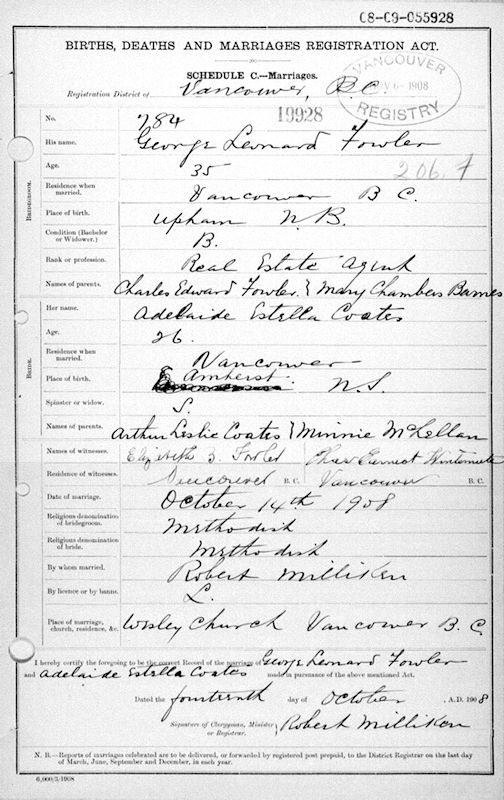 C8-C9-055928
BIRTHS, DEATHS AND MARRIAGES REGISTRATION ACT.
SCHEDULE C.—Marriages.
Registration District of Vancouver, B.C.
VANCOUVER
NOV 6- 1908
REGISTRY
19928
No. 784
His name. George Leonard Fowler
Age. 35
206.7
Residence when married. Vancouver B C.
Place of birth. Upham N.B.
Condition (Bachelor or Widower.) B.
Rank or profession. Real Estate Agent
Names of parents. Charles Edward Fowler. & Mary Chambers Barnes
BRIDEGROOM.
Her name. Adelaide Estella Coates
Age. 26.
Residence when married. Vancouver
Place of birth. Amherst. N.S.
Spinster or widow. S.
Names of parents. Arthur Leslie Coates & Minnie McLellan
BRIDE.
Names of witnesses. Elizabeth Fowler Chas Earnest
Residence of witnesses. Vancouver B.C. Vancouver B.C.
Date of marriage. October 14th 1908
Religious denomination of bridegroom. Methodist
Religious denomination of bride. Methodist
By whom married. Robert Milliken
By licence or by banns. L.
Place of marriage, church, residence, &c. Wesley Church Vancouver B.C.
I hereby certify the foregoing to be the correct Record of the marriage of George Leonard Fowler
and Adelaide Estella Coates made in pursuance of the above mentioned Act.
Dated the fourteenth day of October A.D. 1908
Signature of Clergyman, Minister or Registrar. Robert Milliken
N. B.—Reports of marriages celebrated are to be delivered, or forwarded by registered post prepaid, to the District Registrar on the last day
of March, June, September and December, in each year.
6,000/3/1908